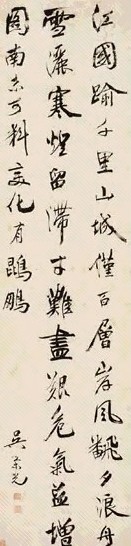 江國踰千里山城僅百層岸風翻夕浪舟
雪灑寒燈留滯才難盡艱危氣益增
圖南未可料變化有鵾鵬
吳榮光